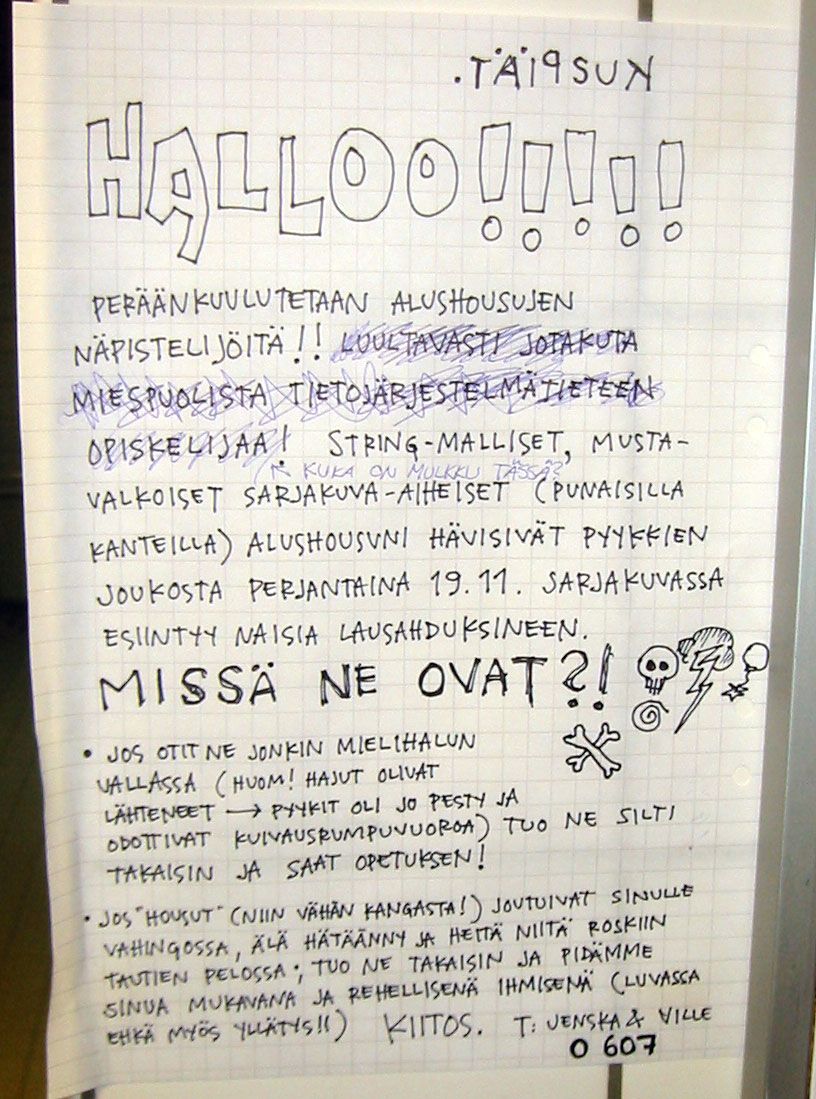 KUSPIÄT.
HALLOO!!!!!
PERÄÄNKUULUTETAAN ALUSHOUSUJEN
NÄPISTELIJÖITÄ!! LUULTAVASTI JOTAKUTA
MIESPUOLISTA TIETOJÄRJESTELMÄTIETEEN
OPISKELIJAA! STRING-MALLISET, MUSTA-
(↖ KUKA ON MULKKU TÄSSÄ?
VALKOISET SARJAKUVA-AIHEISET (PUNAISILLA
KANTEILLA) ALUSHOUSUNI HÄVISIVÄT PYYKKIEN
JOUKOSTA PERJANTAINA 19.11. SARJAKUVASSA
ESIINTYY NAISIA LAUSAHDUKSINEEN.
MISSÄ NE OVAT?!
• JOS OTIT NE JONKIN MIELIHALUN
VALLASSA (HUOM! HAJUT OLIVAT
LÄHTENEET → PYYKIT OLI JO PESTY JA
ODOTTIVAT KUIVAUSRUMPUVUOROA) TUO NE SILTI
TAKAISIN JA SAAT OPETUKSEN!
• JOS "HOUSUT" (NIIN VÄHÄN KANGASTA!) JOUTUIVAT SINULLE
VAHINGOSSA, ÄLÄ HÄTÄÄNNY JA HEITÄ NIITÄ ROSKIIN
TAUTIEN PELOSSA; TUO NE TAKAISIN JA PIDÄMME
SINUA MUKAVANA JA REHELLISENÄ IHMISENÄ (LUVASSA
EHKÄ MYÖS YLLÄTYS!!) KIITOS. T: JENSKA & VILLE
O 607